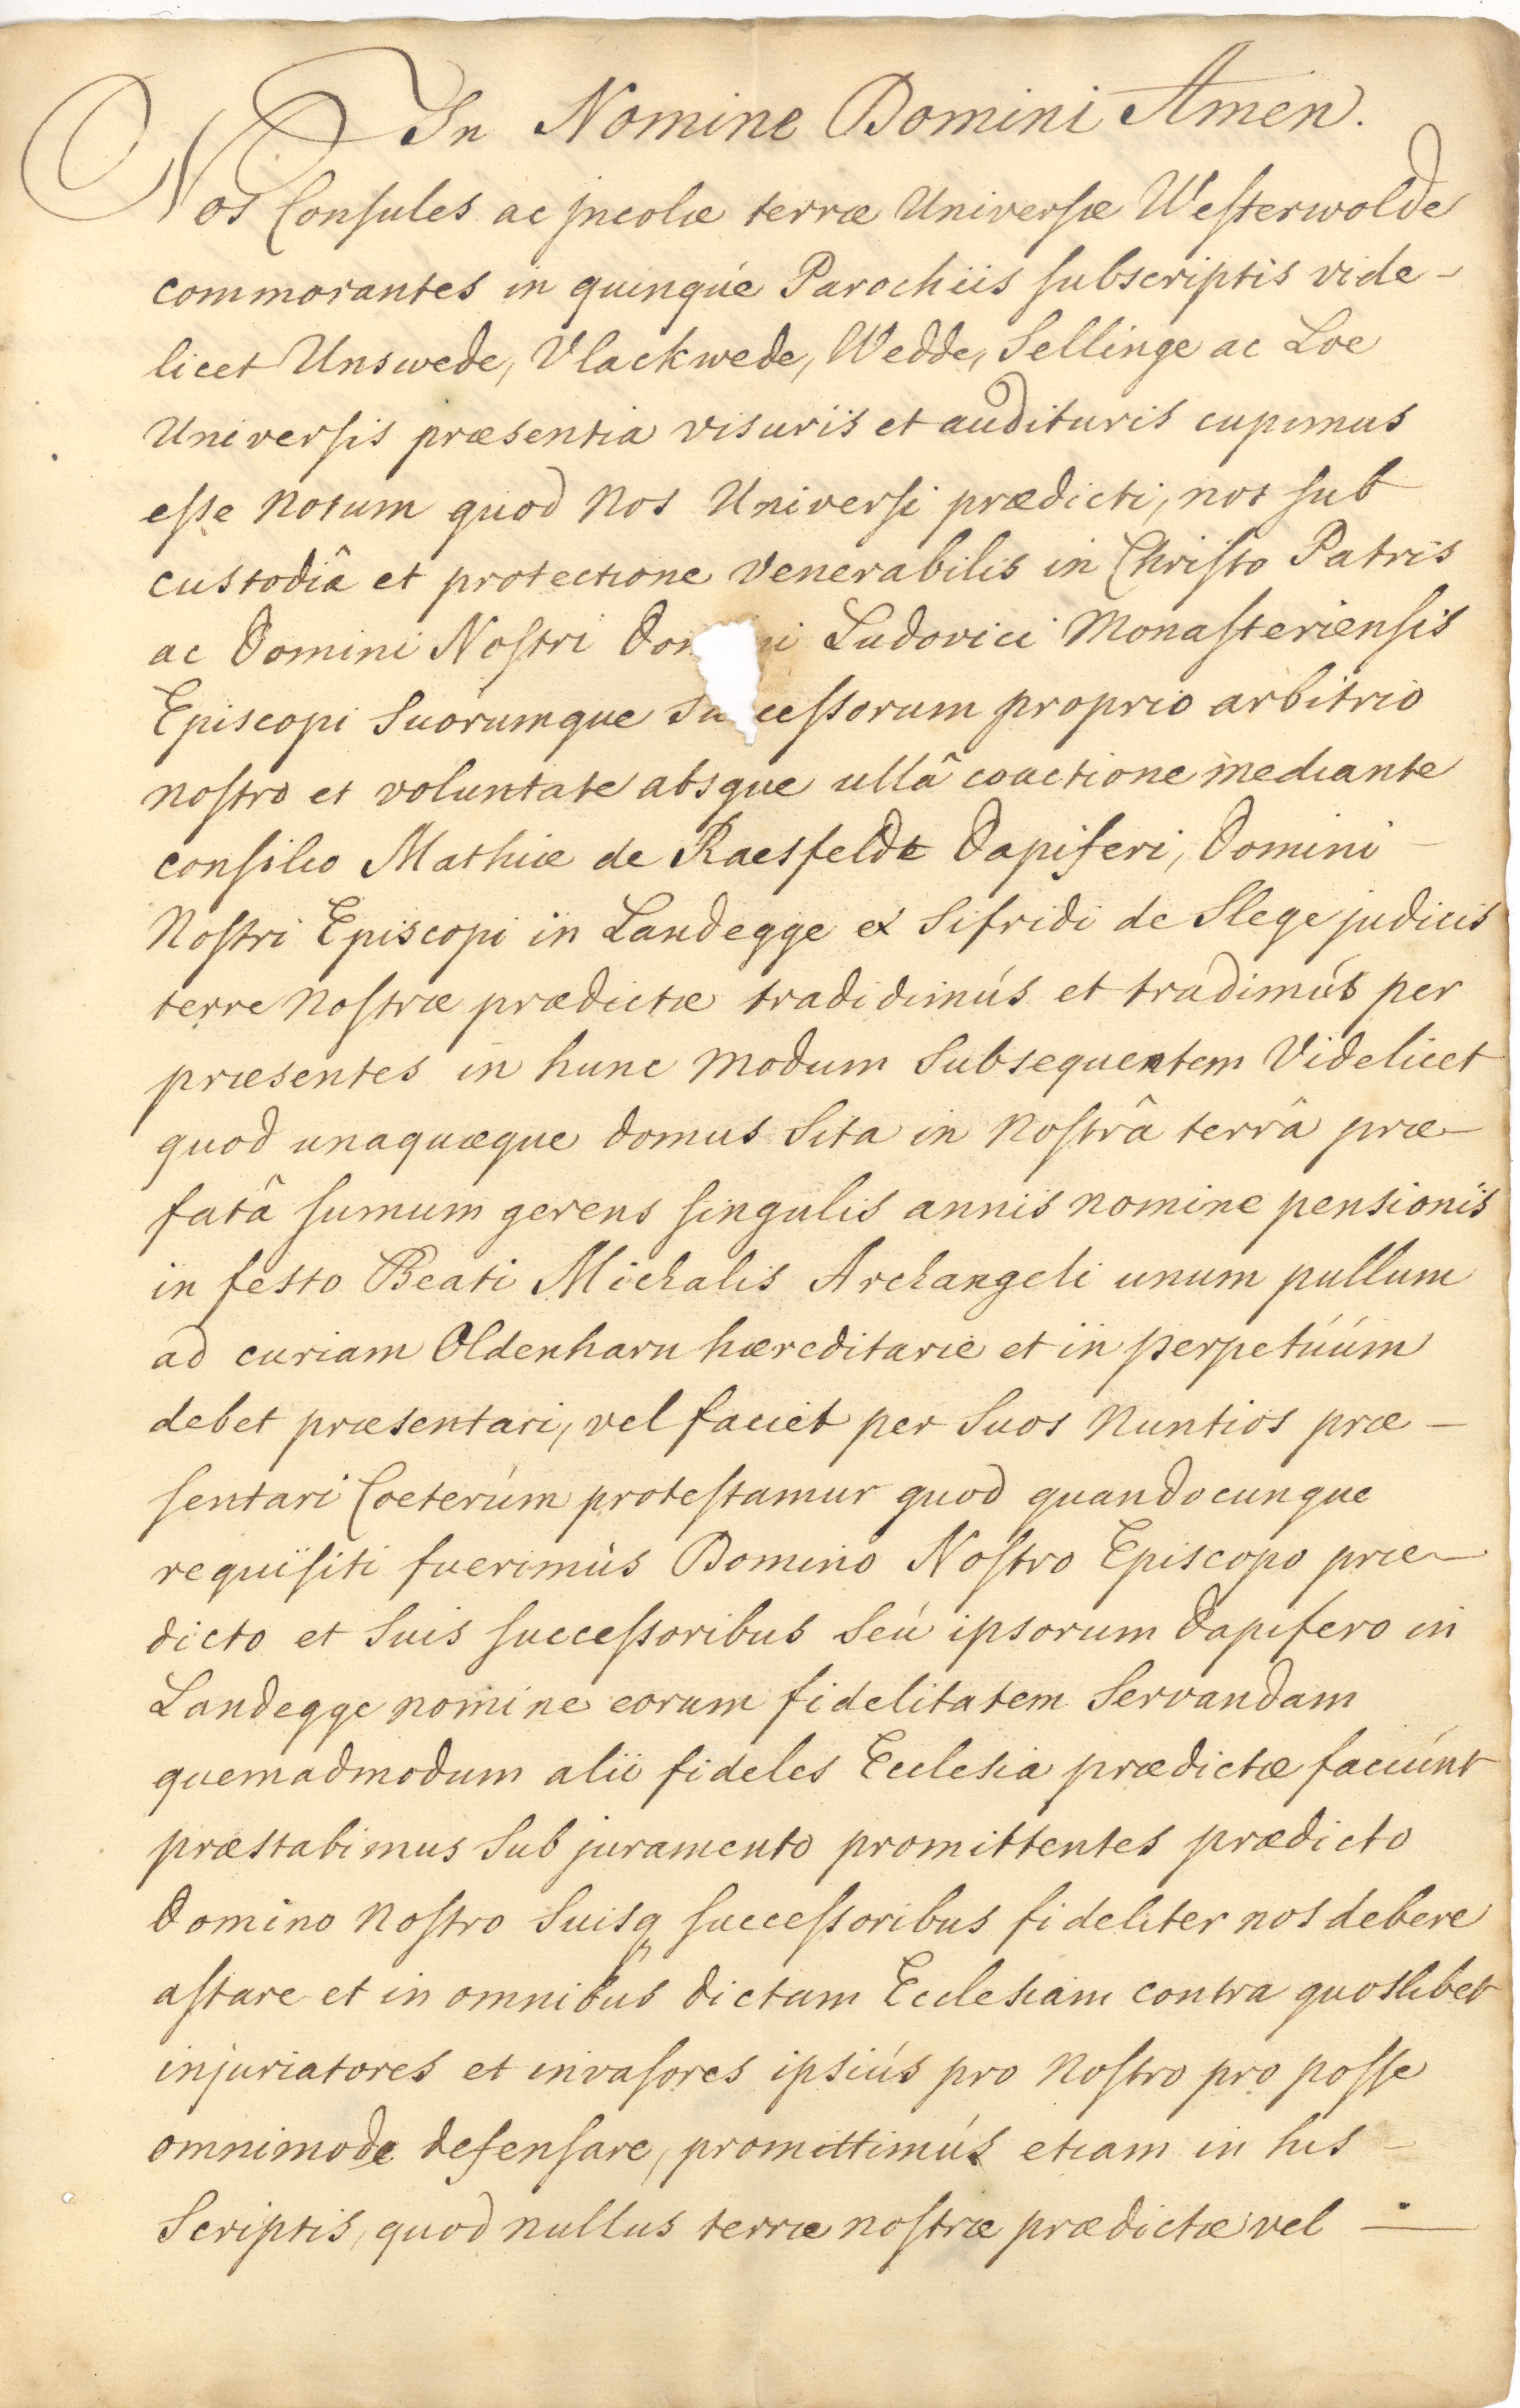 In Nomine Domini Amen.
Nos Consules ac jncolæ terræ Universæ Westerwolde
commorantes in quinqúe Parochiis subscriptis vide-
licet Unswede, Vlackwede, Wedde, Sellinge ac Loe
Universis præsentia visuris et audituris cupimus
esse notum quod Nos Universi prædicti, nos sub
custodiâ et protectione Venerabilis in Christo Patris
ac Domini Nostri Ludovici Monasteriensis
Episcopi Suorumque proprio arbitrio
nostro et voluntate absque ullâ coactione mediante
consilio Mathiæ de Raesfeldt Dapiferi, Domini
Nostri Episcopi in Landegge et Sifridi de Slege judicis
terre Nostræ prædictæ tradidimús et tradimús per
præsentes in hunc modum Subsequentem Videlicet
quod unaquæque domus Sita in Nostrâ terrâ præ-
fatâ fumum gerens singulis annis nomine pensionis
in festo Beati Michalis Archangeli unum pullum
ad curiam Oldenharn hæreditarie et in perpetúúm
debet præsentari, vel faciet per Suos Nuntios præ-
sentari Cæterúm protestamur quod quandocunque
requisiti fuerimús Domino Nostro Episcopo præ-
dicto et Suis successoribus Seú ipsorum Dapifero in
Landegge nomine eorum fidelitatem Servandam
quemadmodum alii fideles Ecclesia prædictæ faciúnt
præstabimus Sub juramento promittentes prædicto
Domino Nostro Suisq successoribus fideliter nos debere
astare et in omnibús dictam Ecclesiam contra quoslibet
injuriatores et invasores ipsiús pro Nostro pro posse
omnimode defensare, promittimús etiam in his
Scriptis, quod nullus terræ nostræ prædictæ vel